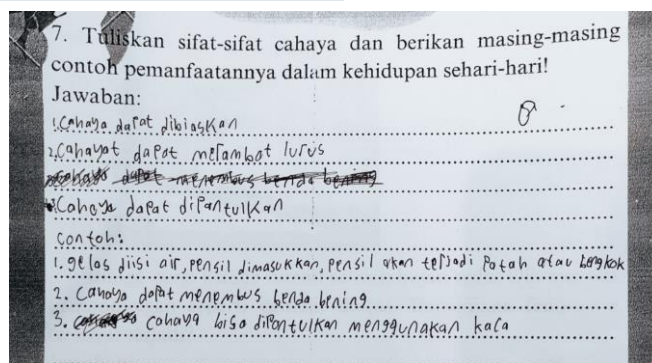 7. Tuliskan sifat-sifat cahaya dan berikan masing-masing
contoh pemanfaatannya dalam kehidupan sehari-hari!
Jawaban:
1. Cahaya dapat dibiaskan
2. Cahayat dapat merambat lurus
cahaya dapat menembus benda bening
3. Cahaya dapat dipantulkan
Contoh:
1. gelas diisi air, pensil dimasukkan, pensil akan terjadi Patah atau bengkok
2. Cahaya dapat menembus benda bening
3. cahaya bisa dipantulkan menggunakan kaca